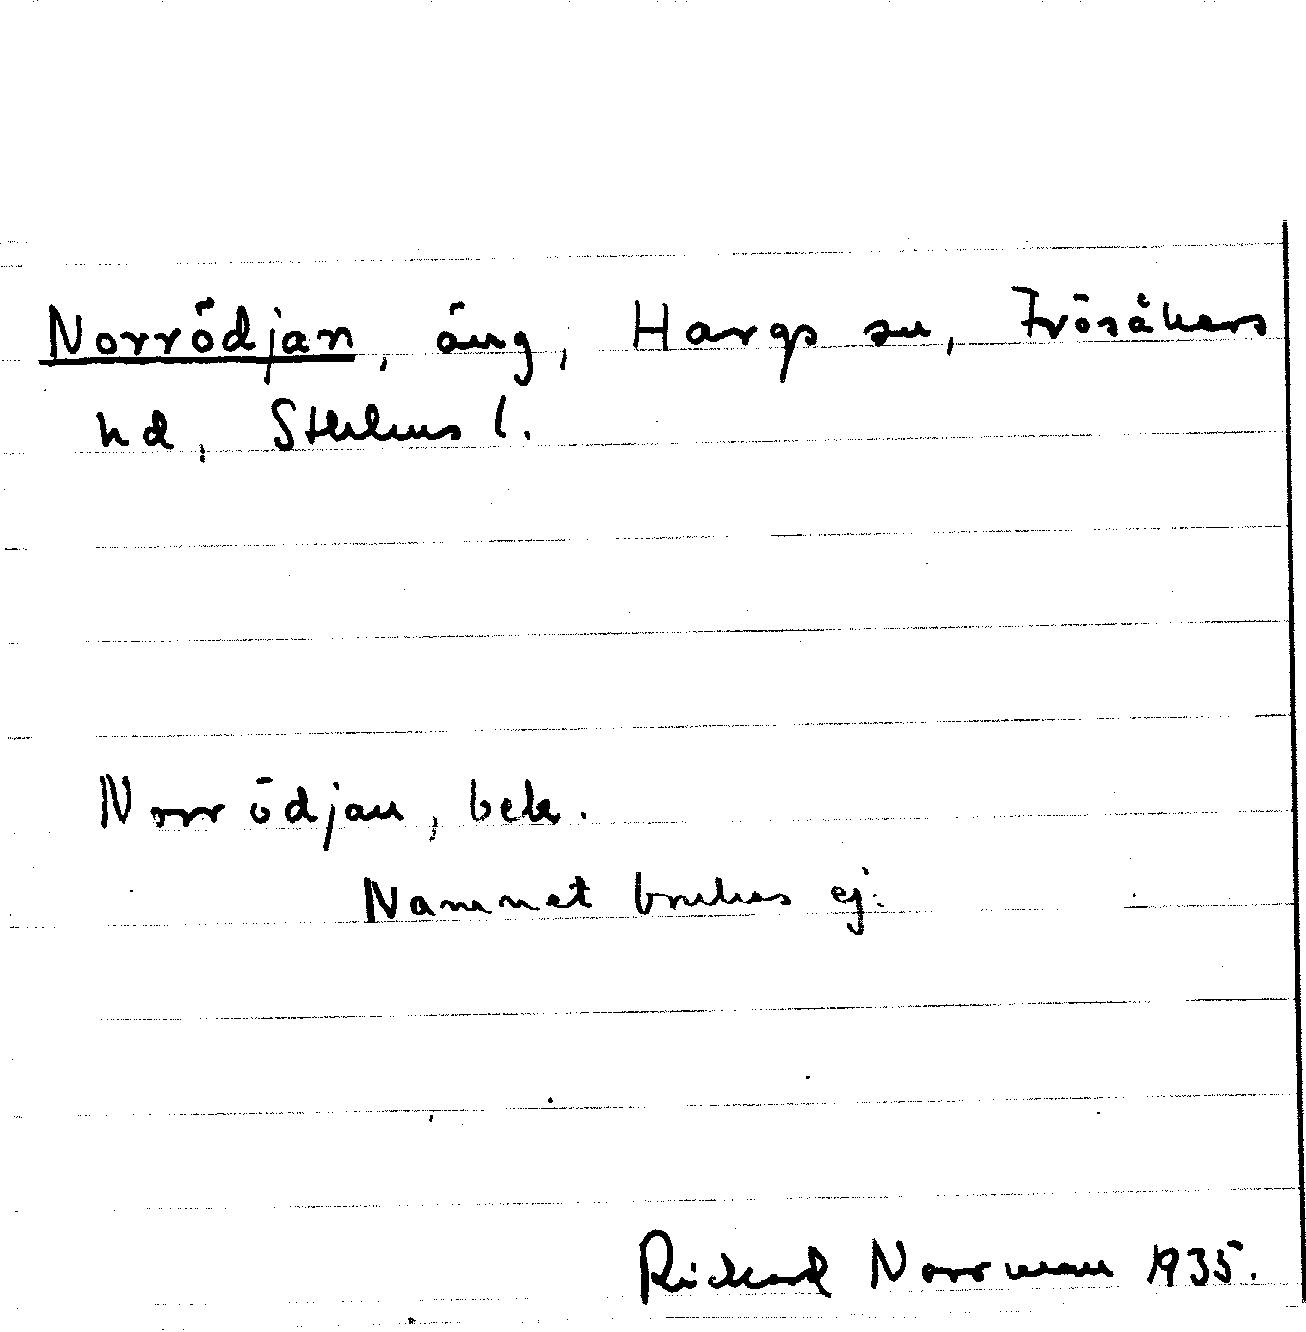 Norrödjan, äng, Hargs sn, Frösåkers
hd, Sthlms l.
Norrödjan, bek.
Namnet brukas ej.
Rickard Norrman 1935.